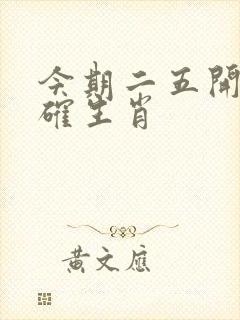 今期二五開
確生肖
黄文應